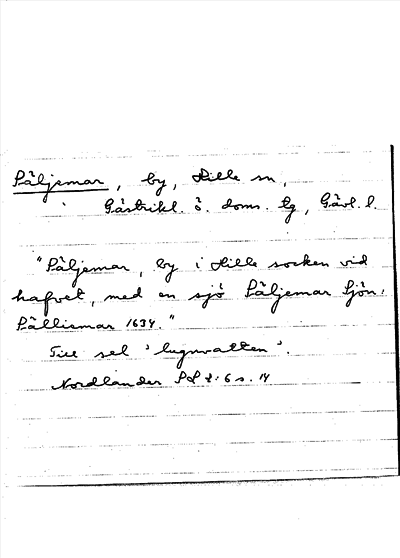 Påljemar, by, Hille sn,
Gästrikl. ö. doms. tg, Gävl. l.
"Påljemar, by i Hille socken vid
hafvet, med en sjö Påljemar Sjön:
Pållismar 1634."
Till sel 'lugnvatten'.
Nordlander 2:6 s. 14